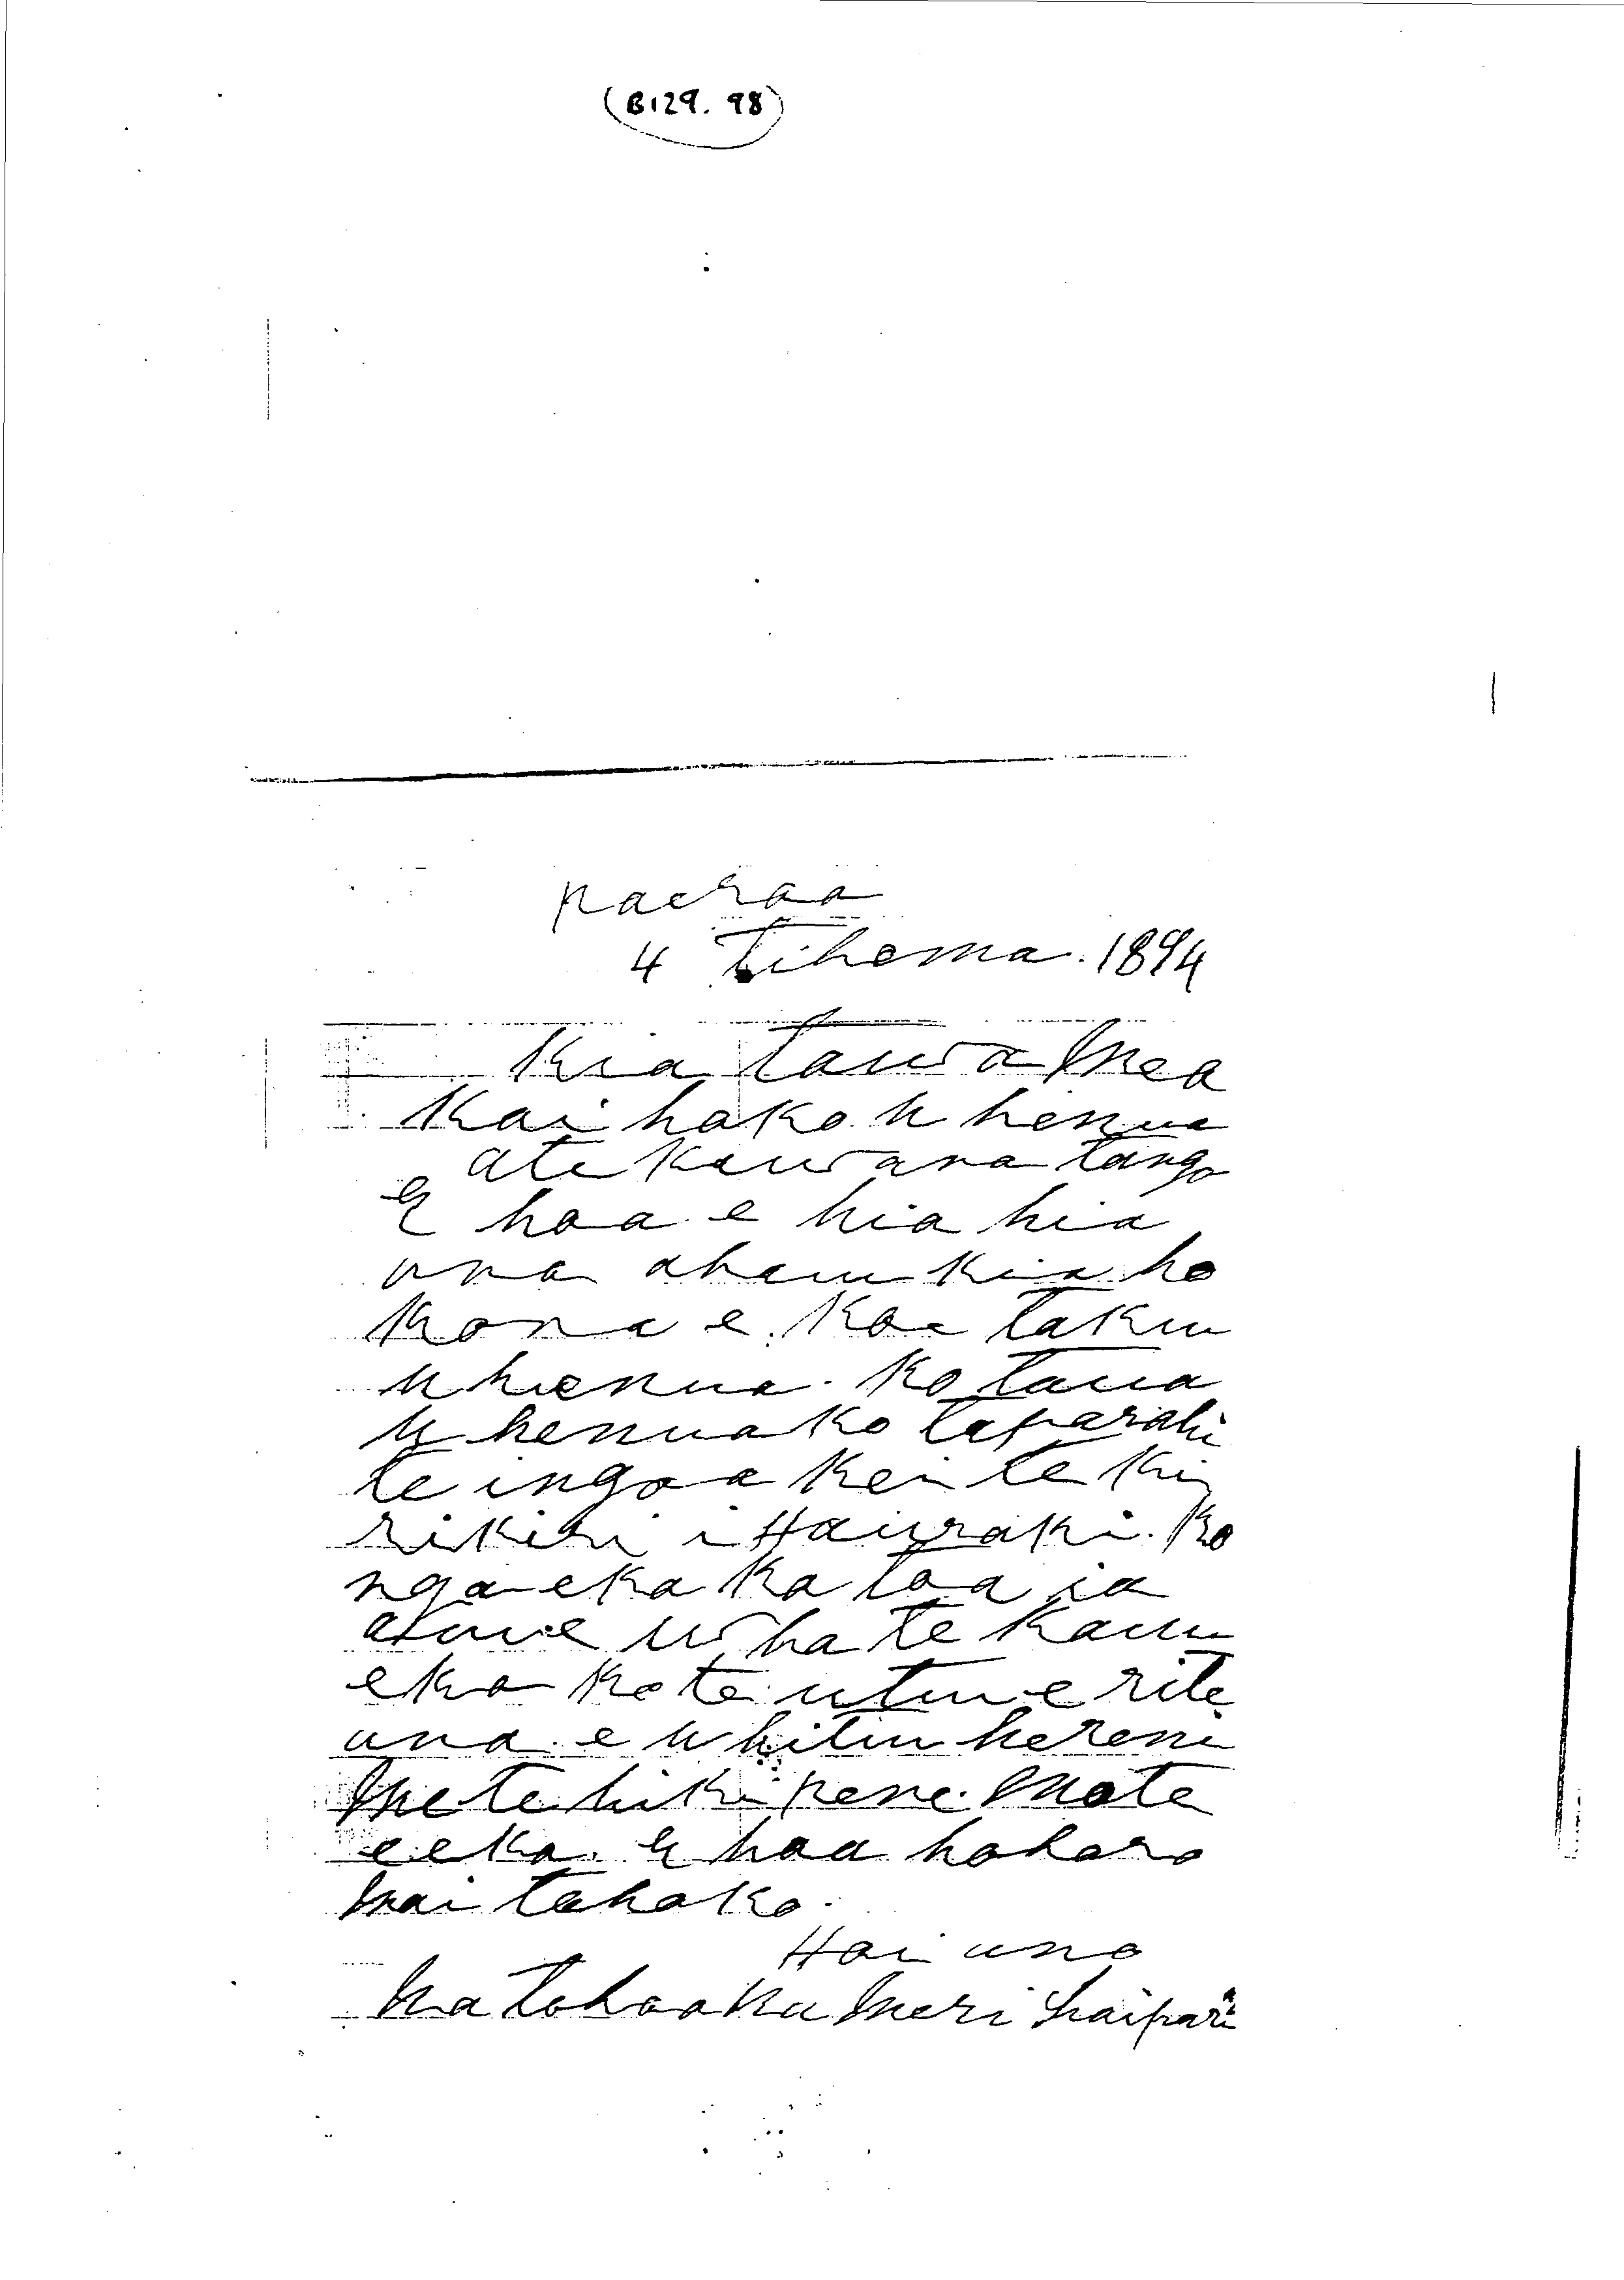 (B129. 98)
Paeraa
4 Tihema. 1894
Kia Tawa Mea
Kai hoko W henua
Ate Kawana tanga
E hoa e hia hia
ana ahau Kia ho
Kona e. Koe taku
W henua. Ko taua
W henua Ko Taparahi
te ingoa Kei te Ki
rikiri i Hauraki. Ko
nga eka Ka toa ia
atu e Wha te Kau
eka Ko te utu e rite
ana. e W hitu hereni
Me te hiki pene. Mo te
eeka. E hoa hohoro
Mai tahoko.
Hoi ano
Na to hoa Na Meri Taipari